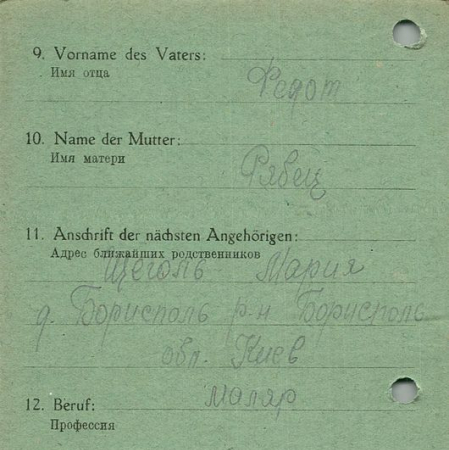 9. Vorname des Vaters:
Имя отца
Федот
10. Name der Mutter:
Имя матери
Рябец
11. Anschrift der nächsten Angehörigen:
Адрес ближайших родственников
Щеголь Мария
д. Борисполь р-н Борисполь
обл. Киев
12. Beruf:
маляр
Профессия